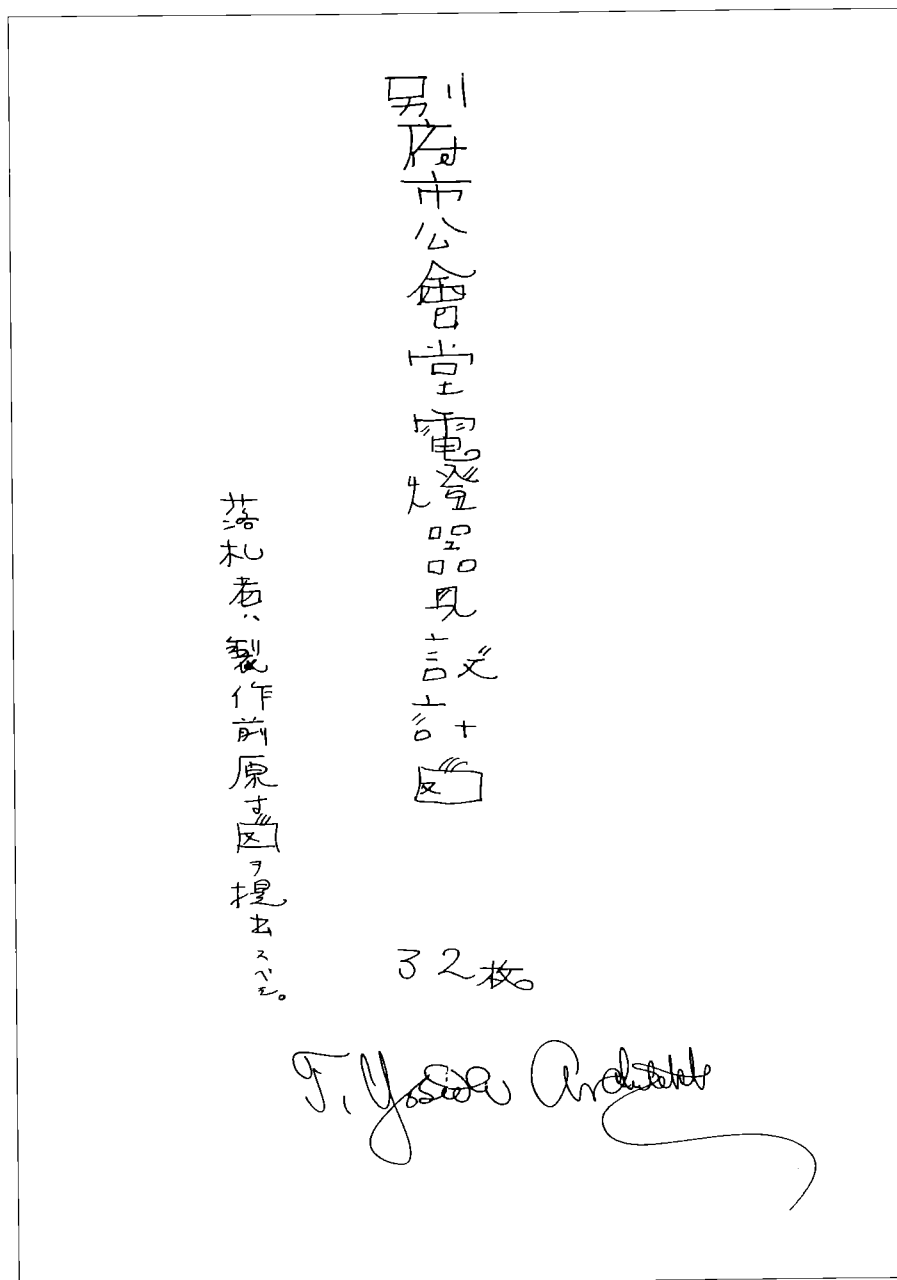 別府市公會堂電燈器具設計図
32枚。
落札者ハ製作前原寸図ヲ提出スベシ。
T. Yosida Architekt